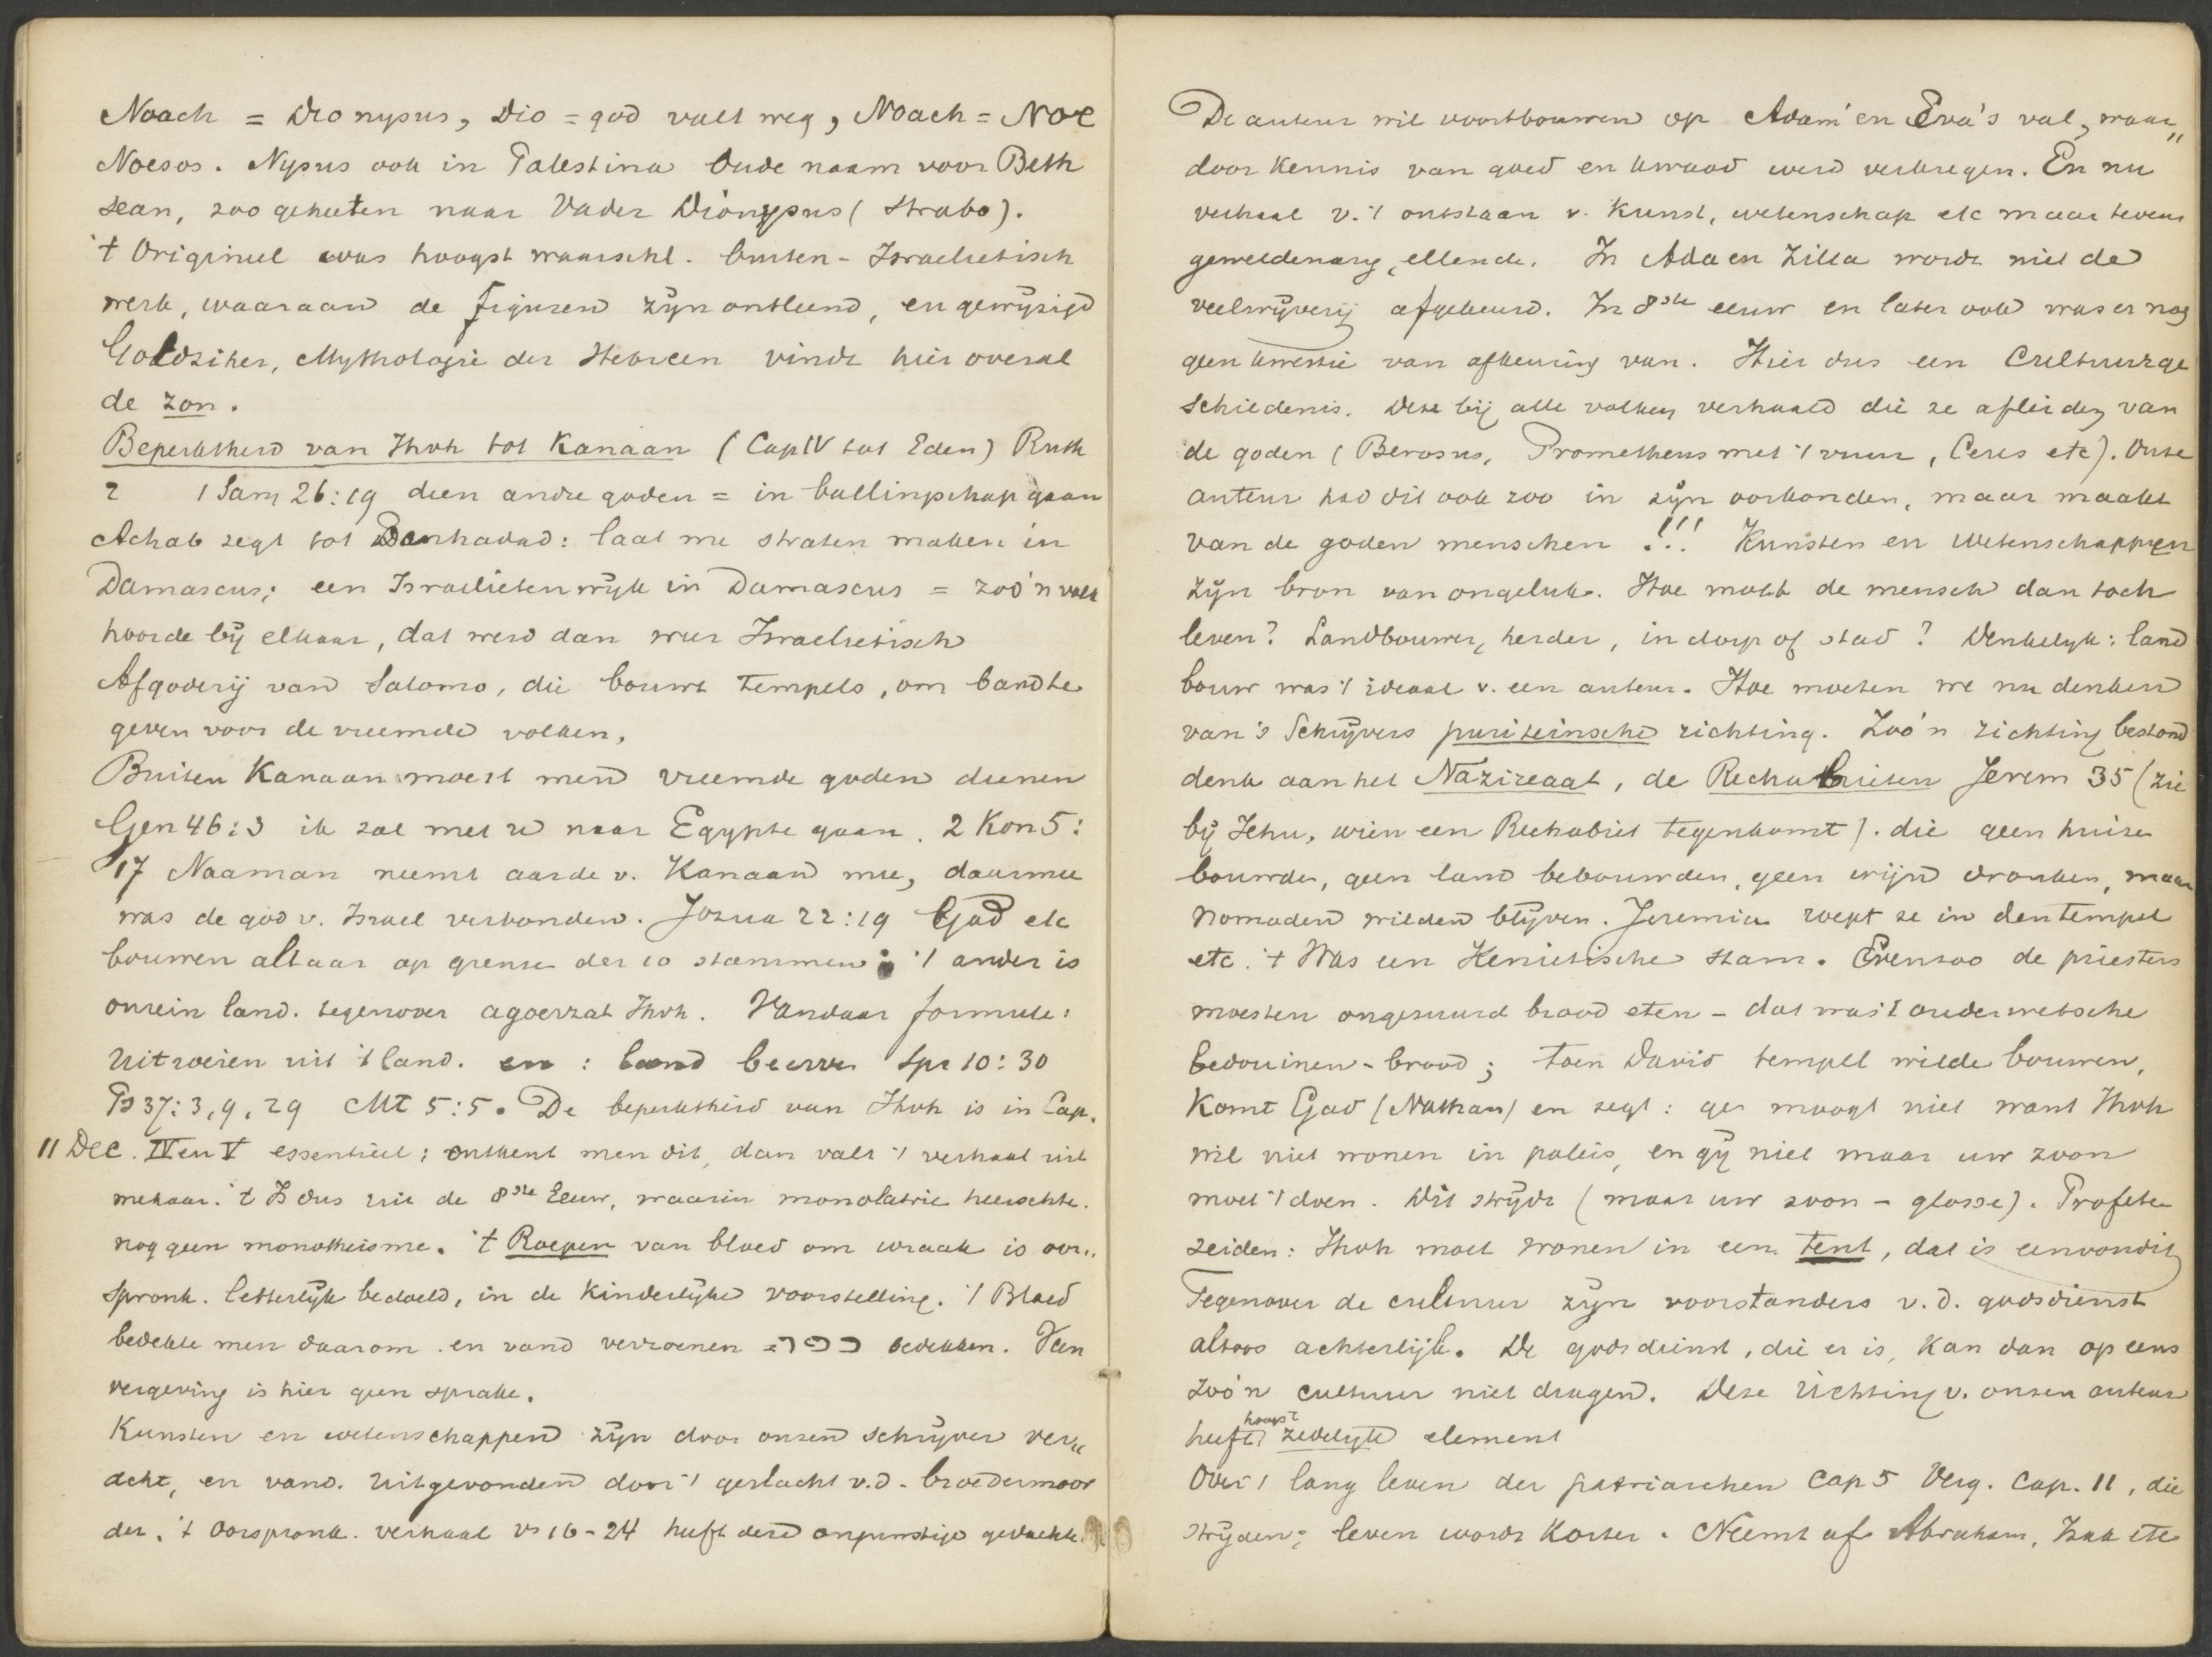 Noach = Dionysus, Dio = god valt weg, Noach = Noe
Noesos. Nysus ook in Palestina oude naam voor Beth
sean, zoo geheeten naar Vader Dionysus (Strabo).
't Origineel was hoogst waarschl. buiten-Israelietisch
werk, waaraan de figuren zijn ontleend, en gewijzigd
Goldziher, Mythologie der Hebreen vindt hier overal
de zon.
Beperktheid van Jhvh tot Kanaan (Cap IV tot Eden) Ruth
2 1 Sam 26:19 dien andre goden = in ballingschap gaan
Achab zegt tot Benhadad: laat me straten maken in
Damascus; een Israelieten wijk in Damascus = zoo'n volk
hoorde bij elkaar, dat werd dan weer Israelietisch
Afgoderij van Salomo, die bouwt tempels, om band te
geven voor de vreemde volken.
Buiten Kanaan moest men vreemde goden dienen
Gen 46:3 ik zal met u naar Egypte gaan. 2 Kon 5:
17 Naaman neemt aarde v. Kanaan mee, daarmee
was de god v. Israel verbonden. Jozua 22:19 Gad etc
bouwen altaar op grens der 10 stammen; 't ander is
onrein land. tegenover agoezzat Jhvh. Vandaar formule:
Uitroeien uit 't land. en : land beërven Spr 10:30
Ps 37:3, 9, 29 Mt 5:5. De beperktheid van Jhvh is in Cap.
11 Dec. IV en V essentieel; ontkent men dit, dan valt 't verhaal uit
mekaar. 't Is dus uit de 8ste Eeuw, waarin monolatrie heerschte.
nog geen monotheisme. 't Roepen van bloed om wraak is oor„
spronk. letterlijk bedoeld, in de kinderlijke voorstelling. 't Bloed
bedekte men daarom. en vand verzoenen = כפר bedekken. Van
vergeving is hier geen sprake.
Kunsten en wetenschappen zijn door onzen schrijver ver„
acht, en vand. uitgevonden door 't geslacht v.d. broedermoor
der. 't Oorspronk. verhaal vs 16-24 heeft deze ongunstige gedachte
De auteur wil voortbouwen op Adam en Eva's val, waar„
door kennis van goed en kwaad werd verkregen. En nu
verhaal v. 't ontstaan v. kunst, wetenschap etc maar tevens
geweldenarij, ellende. In Ada en Zilla wordt niet de
veelwijverij afgekeurd. In 8ste eeuw en later ook was er nog
geen kwestie van afkeuring van. Hier dus een Cultuurge
schiedenis. Deze bij alle volken verhaald die ze afleiden van
de goden (Berosus, Prometheus met 't vuur, Ceres etc). Onze
auteur had dit ook zoo in zijn oorkonden, maar maakt
van de goden menschen !!! Kunsten en Wetenschappen
zijn bron van ongeluk. Hoe moet de mensch dan toch
leven? Landbouwer, herder, in dorp of stad? Denkelijk: land
bouw was 't ideaal v. een auteur. Hoe moeten we nu denken
van 's Schrijvers puriteinsche richting. Zoo'n richting bestond
denk aan het Nazireaat, de Rechabieten Jerem 35 (zie
bij Jehu, wien een Rechabiet tegenkomt). die geen huizen
bouwden, geen land bebouwden, geen wijn dronken, maar
nomaden wilden blijven. Jeremia roept ze in den tempel
etc. 't Was een Kenietische stam. Evenzoo de priesters
moesten ongezuurd brood eten - dat was 't ouderwetsche
bedouinen-brood; toen David tempel wilde bouwen,
Komt Gad (Nathan) en zegt: ge moogt niet want Jhvh
wil niet wonen in paleis, en gij niet maar uw zoon
moet 't doen. Dit strijdt (maar uw zoon - glosse). Profeten
zeiden: Jhvh moet wonen in een tent, dat is eenvoudig
Tegenover de cultuur zijn voorstanders v.d. godsdienst
altoos achterlijk. De godsdienst, die er is, kan dan opeens
zoo'n cultuur niet dragen. Deze richting v. onzen auteur
heeft hoogst zedelijk element
Over 't lang leven der patriarchen Cap 5 Verg. Cap. 11, die
strijden; leven wordt korter. Neemt af Abraham, Izak etc